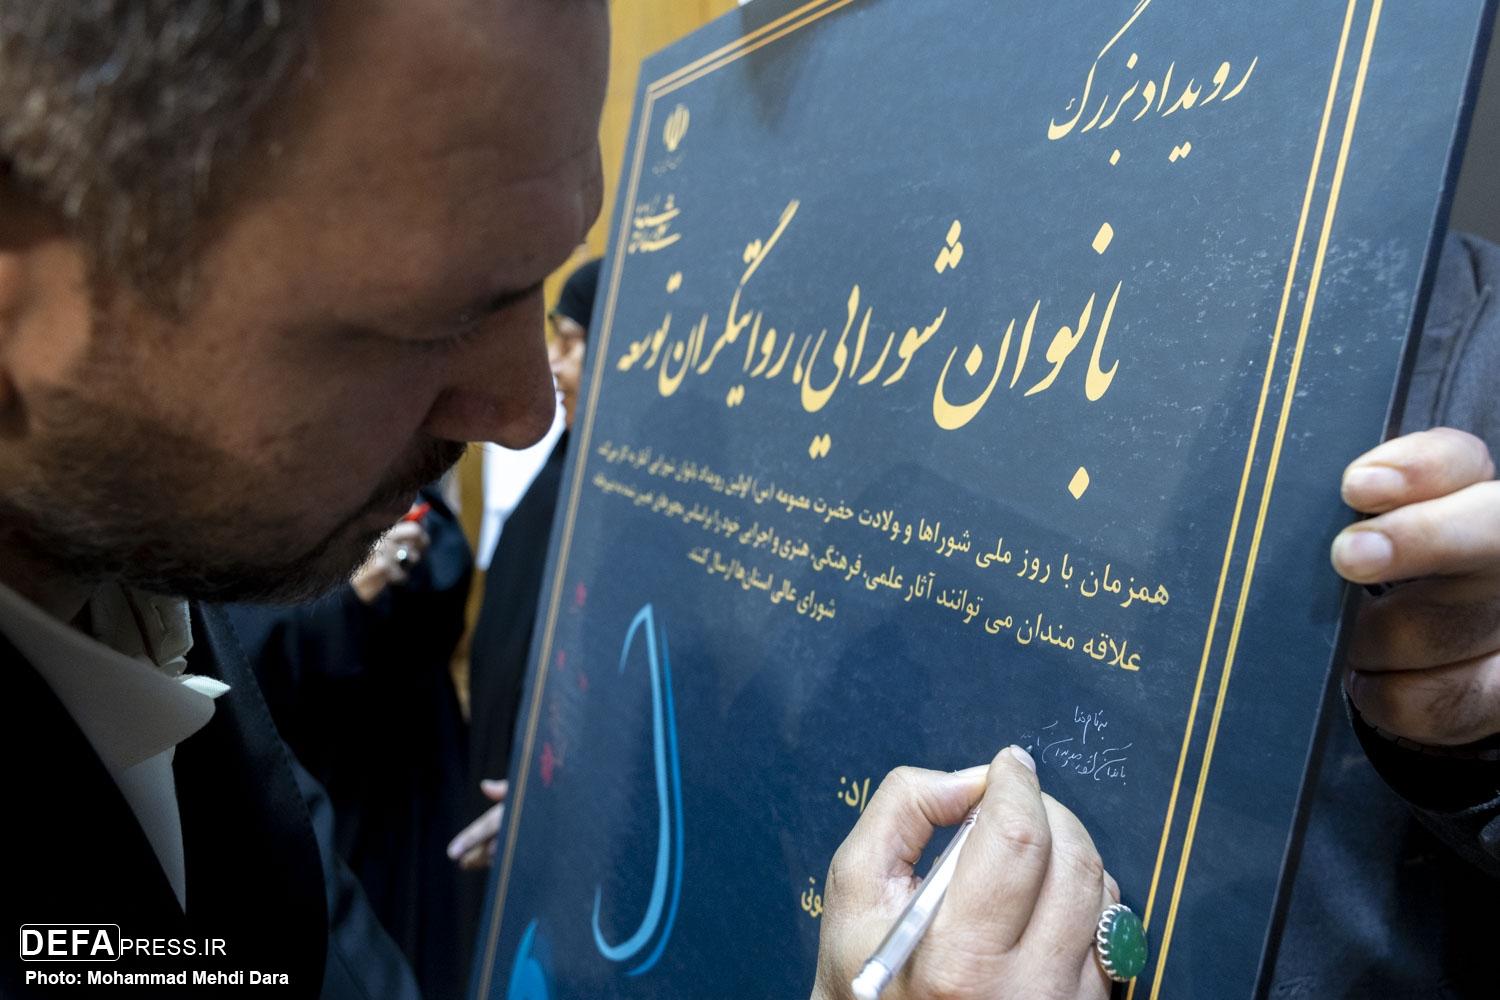 رویداد بزرگ
بانوان شورایی، روایتگران توسعه
همزمان با روز ملی شوراها و ولادت حضرت معصومه (س) اولین رویداد بانوان شورایی آغاز به کار می‌کند.
علاقه مندان می توانند آثار علمی، فرهنگی، هنری و اجرایی خود را براساس محورهای تعیین شده به دبیرخانه
شورای عالی استان‌ها ارسال کنند.
به نام خدا
DEFAPRESS.IR
Photo: Mohammad Mehdi Dara